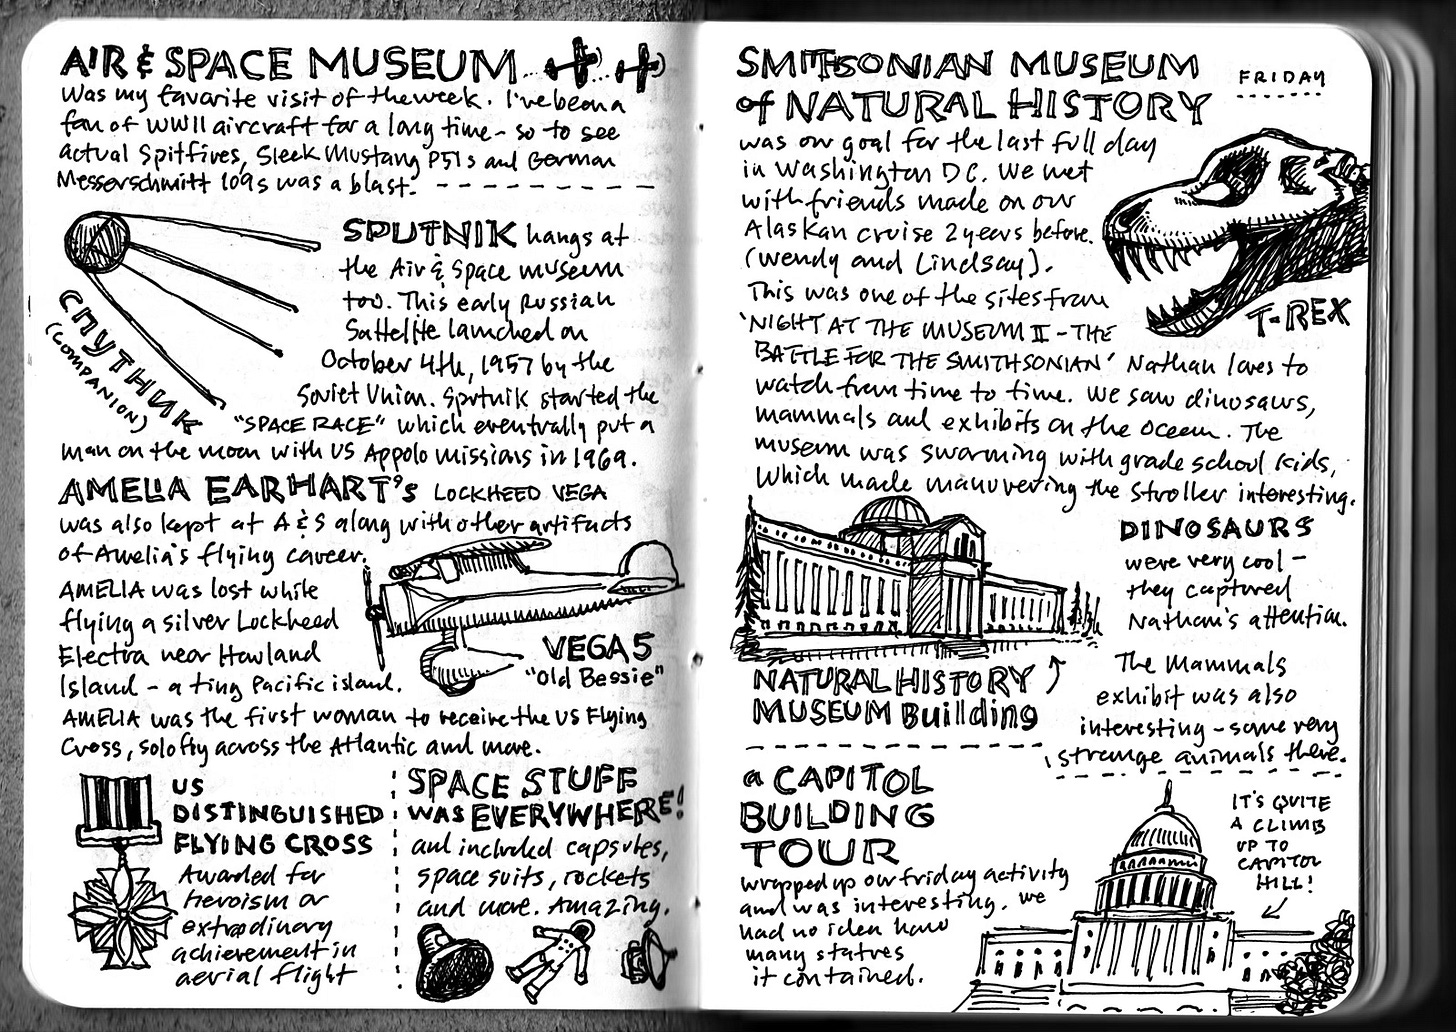 AIR & SPACE MUSEUM
was my favorite visit of the week. I've been a
fan of WWII aircraft for a long time - so to see
actual Spitfires, Sleek Mustang P51s and German
Messerschmitt 109s was a blast.
SPUTNIK hangs at
the Air & Space museum
too. This early Russian
Sattelite launched on
October 4th, 1957 by the
Soviet Union. Sputnik started the
"SPACE RACE" which eventually put a
man on the moon with US Appolo missions in 1969.
СПУТНИК
(COMPANION)
AMELIA EARHART's LOCKHEED VEGA
was also kept at A & S along with other artifacts
of Amelia's flying career.
AMELIA was lost while
flying a silver Lockheed
Electra near Howland
Island - a tiny Pacific island.
AMELIA was the first woman to receive the US Flying
Cross, solo fly across the Atlantic and more.
VEGA 5
"Old Bessie"
US
DISTINGUISHED
FLYING CROSS
Awarded for
heroism or
extraodinary
achievement in
aerial flight
SPACE STUFF
WAS EVERYWHERE!
and included capsules,
space suits, rockets
and more. Amazing.
SMITHSONIAN MUSEUM
of NATURAL HISTORY
FRIDAY
was our goal for the last full day
in Washington DC. We met
with friends made on our
Alaskan cruise 2 years before.
(Wendy and Lindsay).
This was one of the sites from
'NIGHT AT THE MUSEUM II - THE
BATTLE FOR THE SMITHSONIAN' Nathan loves to
watch from time to time. We saw dinosaurs,
mammals and exhibits on the ocean. The
museum was swarming with grade school kids,
which made manuvering the stroller interesting.
T-REX
NATURAL HISTORY
MUSEUM Building
DINOSAURS
were very cool -
they captured
Nathan's attention.
The Mammals
exhibit was also
interesting - some very
strange animals there.
a CAPITOL
BUILDING
TOUR
wrapped up our friday activity
and was interesting. we
had no idea how
many statues
it contained.
IT'S QUITE
A CLIMB
UP TO
CAPITOL
HILL!